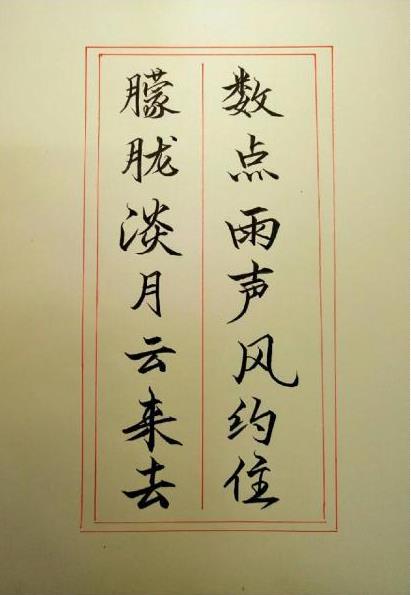 数点雨声风约住
朦胧淡月云来去